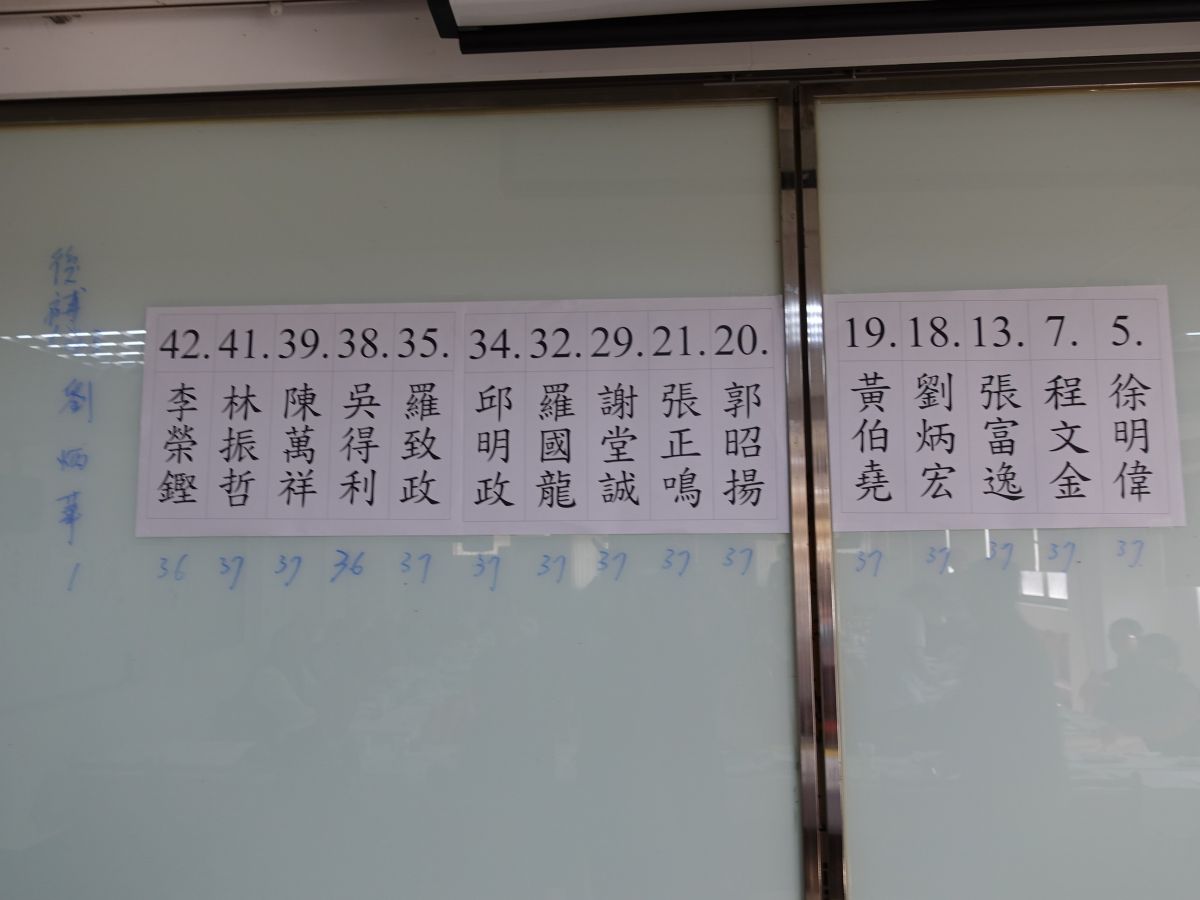 42. 41. 39. 38. 35. 34. 32. 29. 21. 20. 19. 18. 13. 7. 5.
徐明偉
程文金
張富逸
劉炳宏
黃伯堯
郭昭揚
張正鳴
謝堂誠
羅國龍
邱明政
羅致政
吳得利
陳萬祥
林振哲
李榮鏗
後補
劉炳華
1
36 37 37 36 37 37 37 37 37 37 37 37 37 37 37